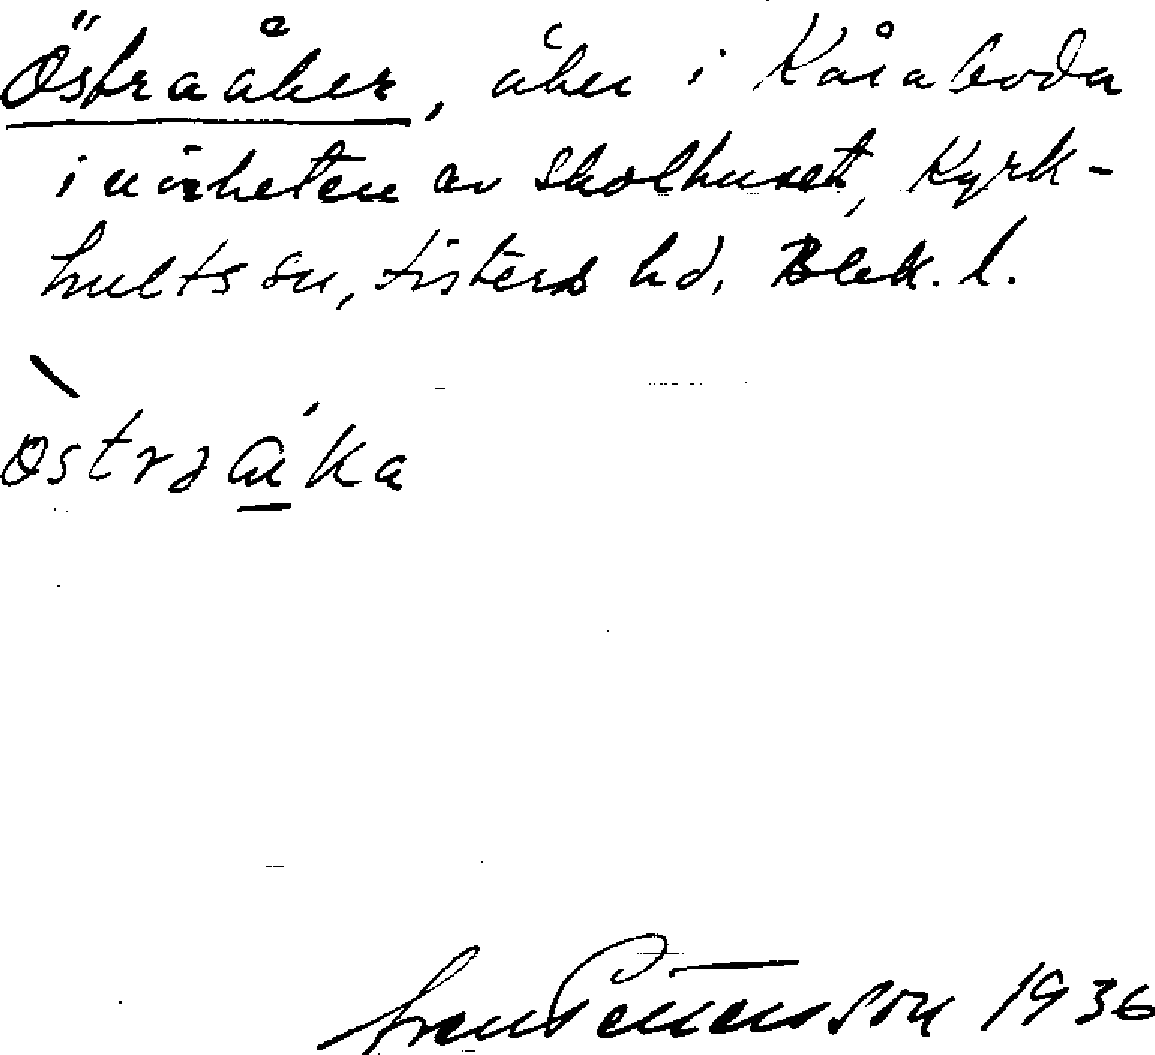 Östraåker, åker i Kåraboda
i närheten av skolhuset, Kyrk-
hults sn, Listers hd, Blek. l.
östraåka
Sven Pettersson 1936